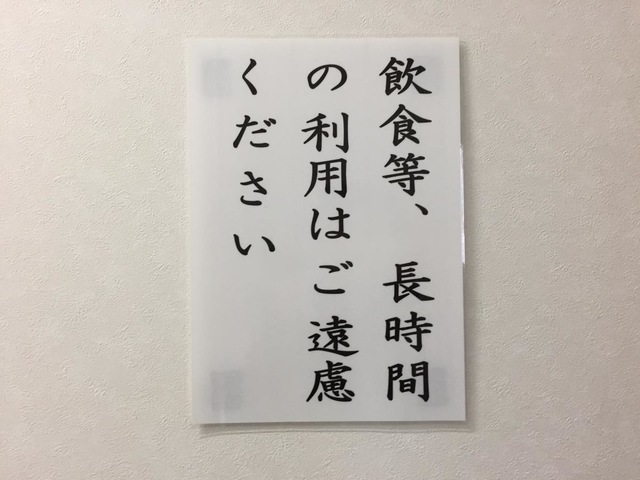 飲食等、長時間
の利用はご遠慮
ください